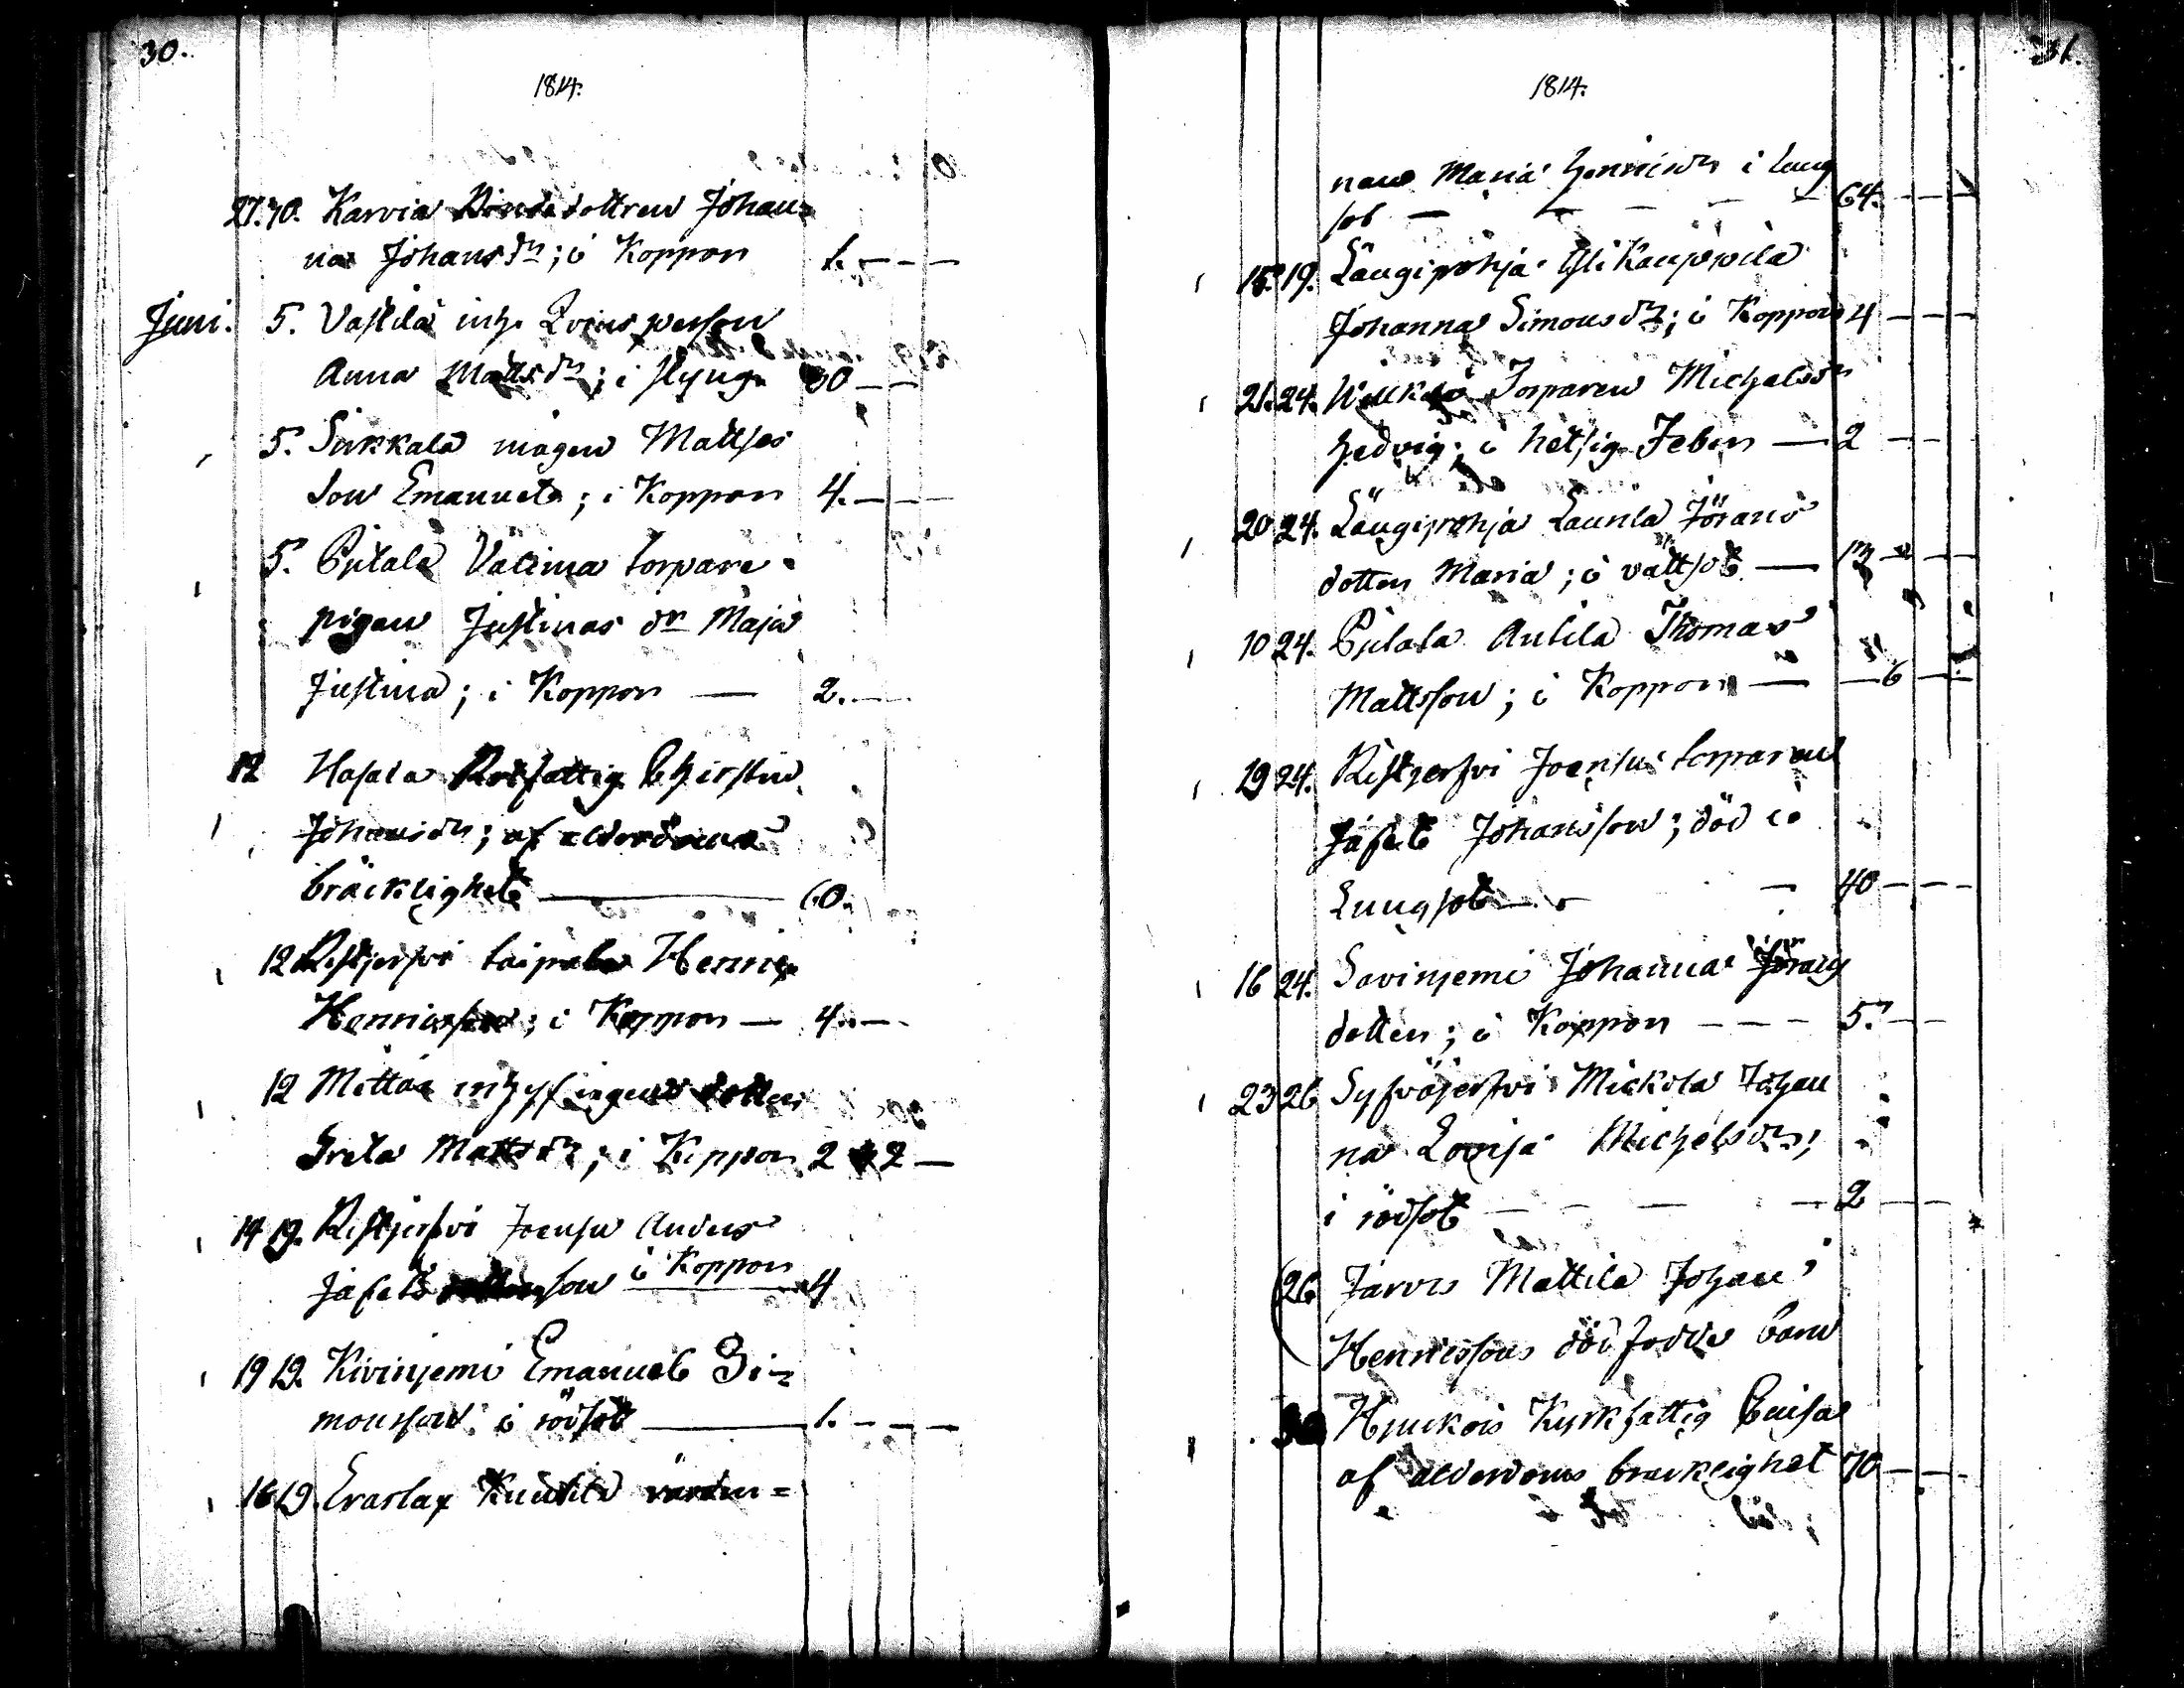 30.
1814.
27. 30. Karvia Bondedottren Johan=
na Johansdr; i Koppor 1. – – –
Juni. 5. Vaskila inh. Qvinsperson
Anna Mattsdr; i styng 30 – –
5. Sukkala mågen Mattses
Son Emanuel; i Koppor 4. – –
5. Pitala Välima torpare
pigan Justinas dr Maja
Justina; i Koppor — 2. –
12 Hajala Rotfattig Christin
Johansdr; af ålderdoms
bräcklighet — 60.
12 Ristjerfvi taipale Henric
Henricsson; i Koppor — 4. –
12 Mettä inhysingens dotter
Greta Mattsdr; i Koppor 2 2 –
14 19. Ristjerfvi Joensu Anders
Jafets son i Koppor 4
19 19. Kivinjemi Emanuel Si=
monsson i rödsot — 1. – – –
16 19. Evarlax Knutila värdin=
31.
1814.
nan Maria Henricsdr i lung
sot – – – – 64. – – –
15. 19. Längipohja Yli Kaupila
Johanna Simonsdr; i Koppor 4 – – –
21. 24. Torparen Michelsdr
Hedvig; i hetsig Feber — 2 – –
20 24. Längipohja Launla Jörans
dotter Maria; i vattsot — 13 – –
10 24. Pitala Antila Thomas
Mattsson; i Koppor — – 6 –
19 24. Ristjerfvi Joensu torparen
Jafet Johansson; död i
Lungsot — – 40 – – –
16 24. Savinjemi Johanna Jörans
dotter; i Koppor – – – 5. – –
23 26 Syfväjerfvi Mickola Johan
na Lovisa Michelsdr;
i rödsot – – – – 2 – –
26. Jarvis Mattila Johan
Henricssons dödfödde barn
30 Hjukois Kyrkfattig Caisa
af ålderdoms bräcklighet 70 – – –